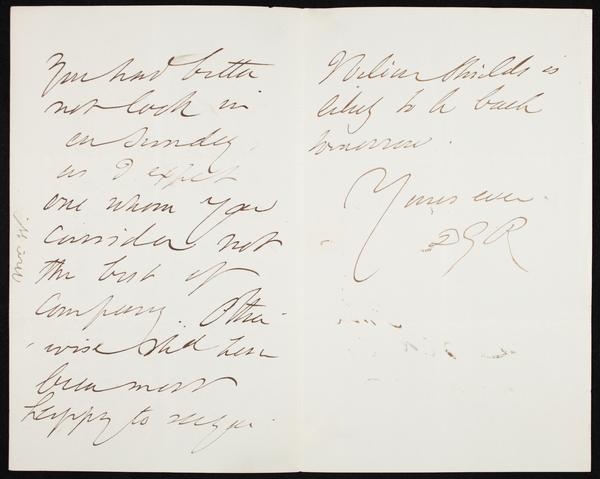 You had better
not look in
on Sunday
as I expect
one whom you
consider not
the best of
company. Other
-wise shd have
been most
happy to see you.
Mrs W.
I believe Shields is
likely to be back
tomorrow.
Yours ever
DGR